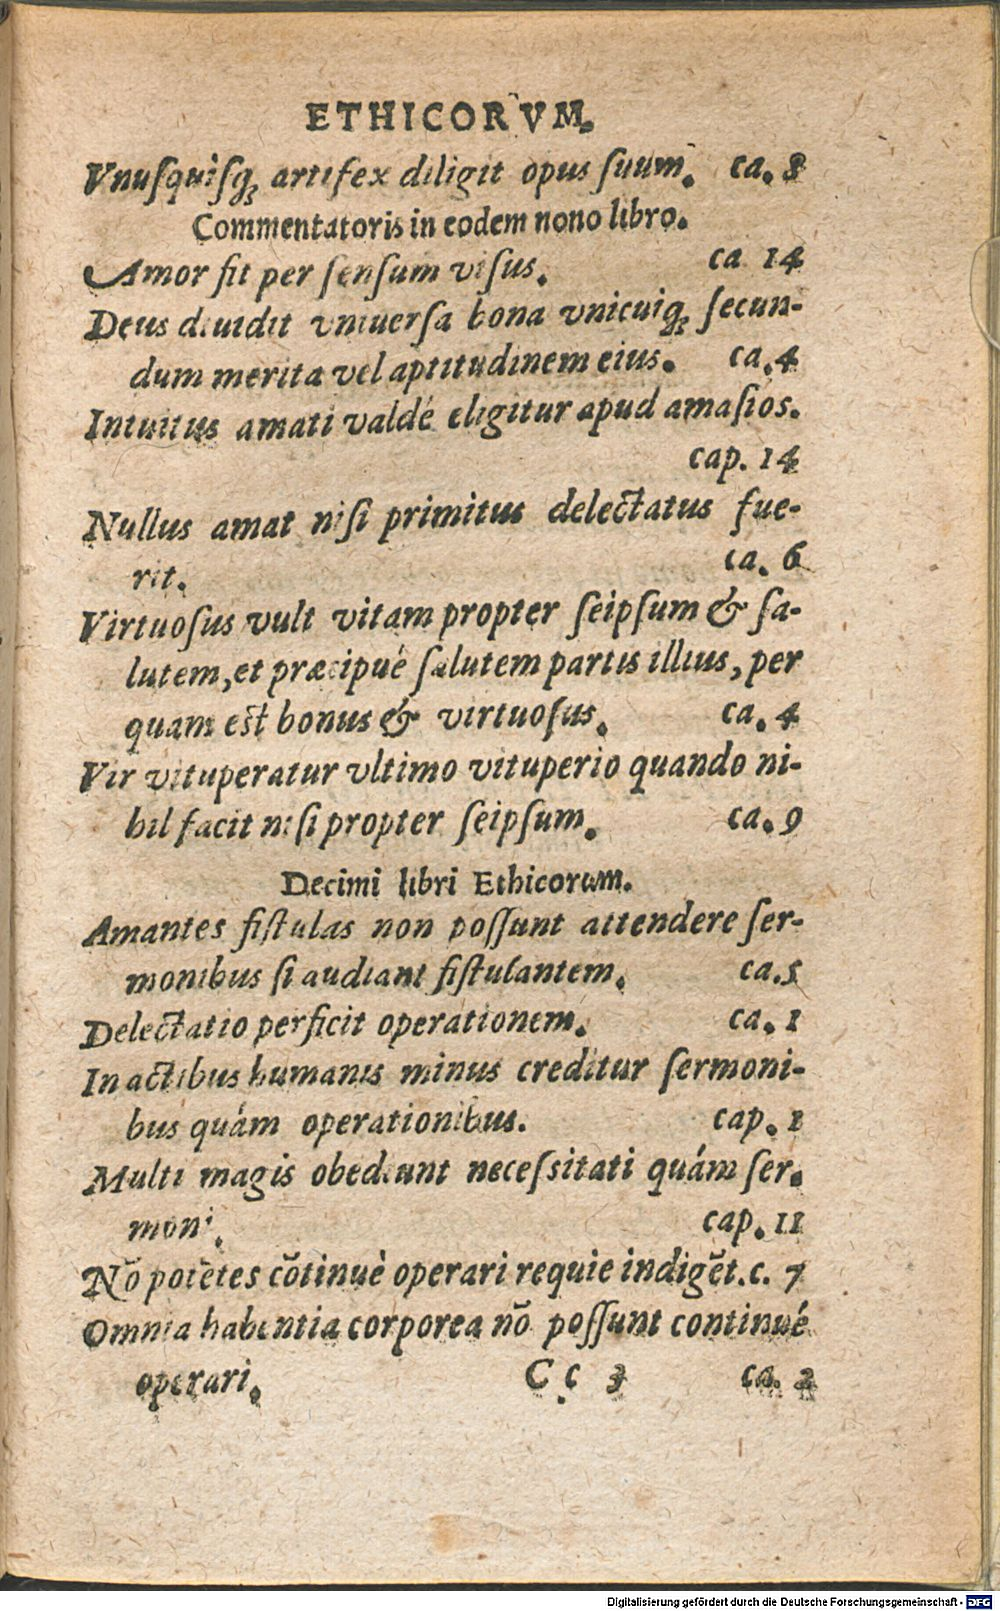 ETHICORVM.
Vnuſquiſq; artifex diligit opus ſuum. ca. 8
Commentatoris in eodem nono libro.
Amor fit per ſenſum viſus. ca 14
Deus diuidit vniuerſa bona vnicuiq; ſecun-
dum merita vel aptitudinem eius. ca. 4
Intuitus amati valdè eligitur apud amaſios.
cap. 14
Nullus amat niſi primitus delectatus fue-
rit. ca. 6
Virtuoſus vult vitam propter ſeipſum & ſa-
lutem, et præcipuè ſalutem partis illius, per
quam est bonus & virtuoſus. ca. 4
Vir vituperatur vltimo vituperio quando ni-
hil facit niſi propter ſeipſum. ca. 9
Decimi libri Ethicorum.
Amantes fiſtulas non poſſunt attendere ſer-
monibus ſi audiant fiſtulantem. ca. 5
Delectatio perficit operationem. ca. 1
In actibus humanis minus creditur ſermoni-
bus quàm operationibus. cap. 1
Multi magis obediunt neceſsitati quàm ſer-
moni. cap. 11
Nõ potẽtes cõtinuè operari requie indigẽt. c. 7
Omnia habentia corporea nõ poſſunt continuè
operari. C c 3 ca. 2
Digitalisierung gefördert durch die Deutsche Forschungsgemeinschaft - DFG